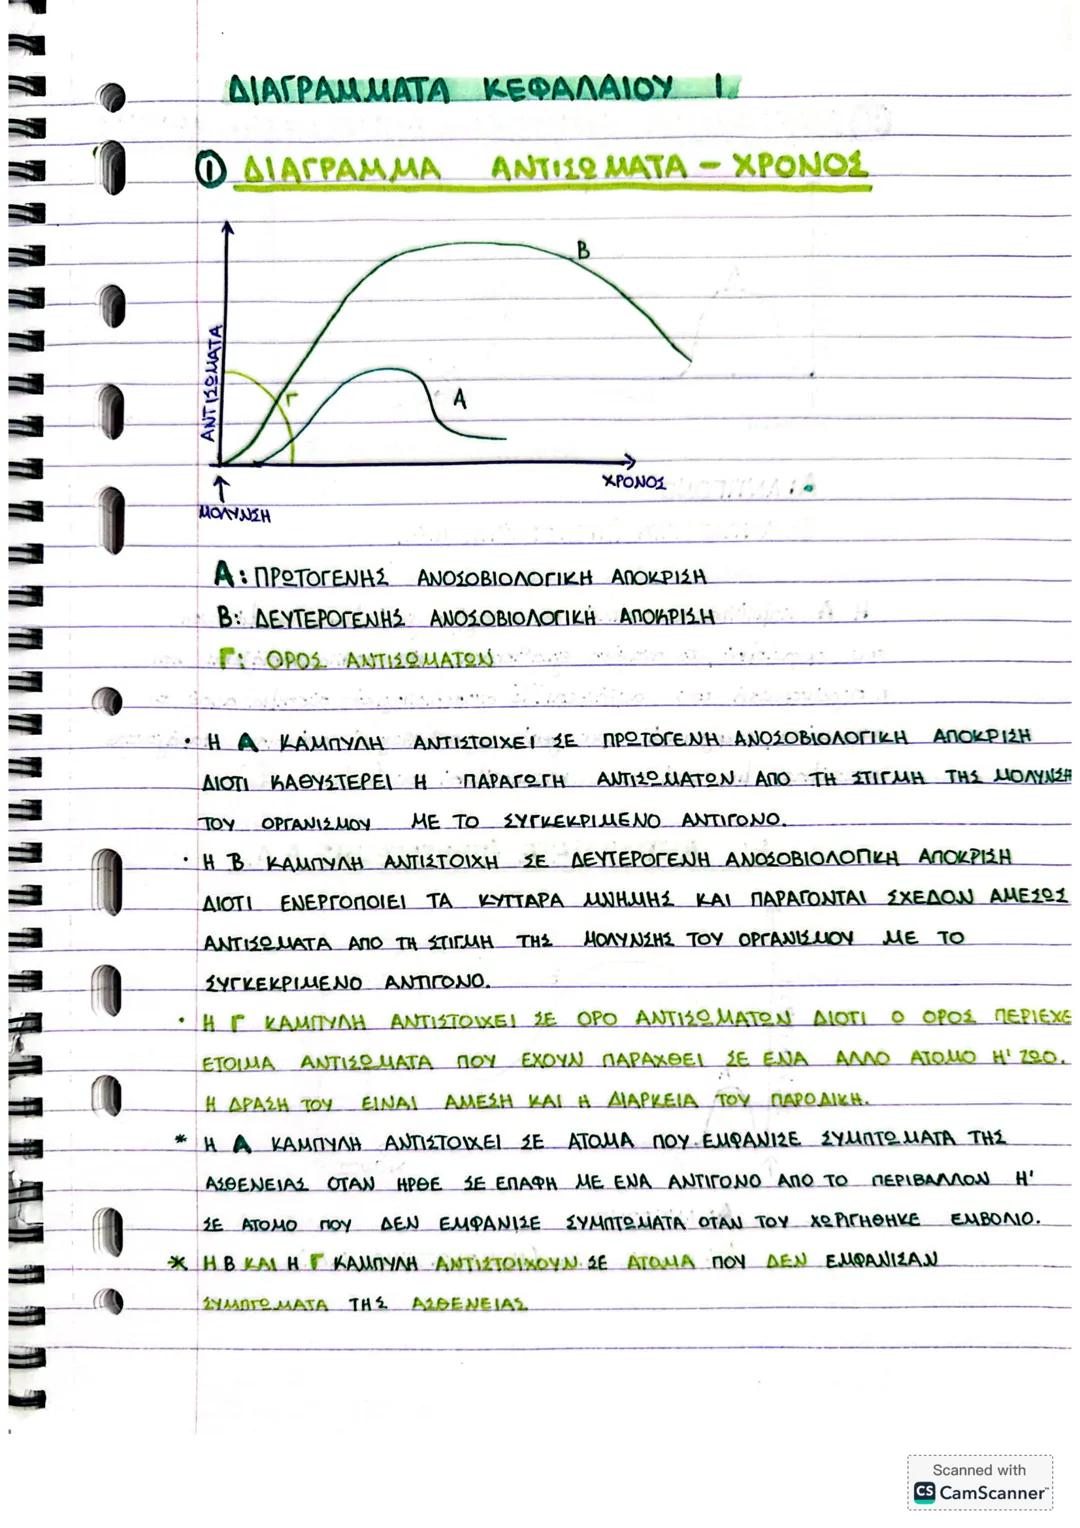 ΔΙΑΓΡΑΜΜΑΤΑ ΚΕΦΑΛΑΙΟΥ 1.
① ΔΙΑΓΡΑΜΜΑ ΑΝΤΙΣΩΜΑΤΑ - ΧΡΟΝΟΣ
Β
ΑΝΤΙΣΩΜΑΤΑ
Γ
Α
ΧΡΟΝΟΣ
ΜΟΛΥΝΣΗ
Α: ΠΡΩΤΟΓΕΝΗΣ ΑΝΟΣΟΒΙΟΛΟΓΙΚΗ ΑΠΟΚΡΙΣΗ
Β: ΔΕΥΤΕΡΟΓΕΝΗΣ ΑΝΟΣΟΒΙΟΛΟΓΙΚΗ ΑΠΟΚΡΙΣΗ
Γ: ΟΡΟΣ ΑΝΤΙΣΩΜΑΤΩΝ
• Η Α ΚΑΜΠΥΛΗ ΑΝΤΙΣΤΟΙΧΕΙ ΣΕ ΠΡΩΤΟΓΕΝΗ ΑΝΟΣΟΒΙΟΛΟΓΙΚΗ ΑΠΟΚΡΙΣΗ
ΔΙΟΤΙ ΚΑΘΥΣΤΕΡΕΙ Η ΠΑΡΑΓΩΓΗ ΑΝΤΙΣΩΜΑΤΩΝ ΑΠΟ ΤΗ ΣΤΙΓΜΗ ΤΗΣ ΜΟΛΥΝΣΗ
ΤΟΥ ΟΡΓΑΝΙΣΜΟΥ ΜΕ ΤΟ ΣΥΓΚΕΚΡΙΜΕΝΟ ΑΝΤΙΓΟΝΟ.
• Η Β ΚΑΜΠΥΛΗ ΑΝΤΙΣΤΟΙΧΗ ΣΕ ΔΕΥΤΕΡΟΓΕΝΗ ΑΝΟΣΟΒΙΟΛΟΓΙΚΗ ΑΠΟΚΡΙΣΗ
ΔΙΟΤΙ ΕΝΕΡΓΟΠΟΙΕΙ ΤΑ ΚΥΤΤΑΡΑ ΜΝΗΜΗΣ ΚΑΙ ΠΑΡΑΓΟΝΤΑΙ ΣΧΕΔΟΝ ΑΜΕΣΩΣ
ΑΝΤΙΣΩΜΑΤΑ ΑΠΟ ΤΗ ΣΤΙΓΜΗ ΤΗΣ ΜΟΛΥΝΣΗΣ ΤΟΥ ΟΡΓΑΝΙΣΜΟΥ ΜΕ ΤΟ
ΣΥΓΚΕΚΡΙΜΕΝΟ ΑΝΤΙΓΟΝΟ.
• Η Γ ΚΑΜΠΥΛΗ ΑΝΤΙΣΤΟΙΧΕΙ ΣΕ ΟΡΟ ΑΝΤΙΣΩΜΑΤΩΝ ΔΙΟΤΙ Ο ΟΡΟΣ ΠΕΡΙΕΧΕ
ΕΤΟΙΜΑ ΑΝΤΙΣΩΜΑΤΑ ΠΟΥ ΕΧΟΥΝ ΠΑΡΑΧΘΕΙ ΣΕ ΕΝΑ ΑΛΛΟ ΑΤΟΜΟ Η' ΖΩΟ.
Η ΔΡΑΣΗ ΤΟΥ ΕΙΝΑΙ ΑΜΕΣΗ ΚΑΙ Η ΔΙΑΡΚΕΙΑ ΤΟΥ ΠΑΡΟΔΙΚΗ.
* Η Α ΚΑΜΠΥΛΗ ΑΝΤΙΣΤΟΙΧΕΙ ΣΕ ΑΤΟΜΑ ΠΟΥ ΕΜΦΑΝΙΣΕ ΣΥΜΠΤΩΜΑΤΑ ΤΗΣ
ΑΣΘΕΝΕΙΑΣ ΟΤΑΝ ΗΡΘΕ ΣΕ ΕΠΑΦΗ ΜΕ ΕΝΑ ΑΝΤΙΓΟΝΟ ΑΠΟ ΤΟ ΠΕΡΙΒΑΛΛΟΝ Η'
ΣΕ ΑΤΟΜΟ ΠΟΥ ΔΕΝ ΕΜΦΑΝΙΣΕ ΣΥΜΠΤΩΜΑΤΑ ΟΤΑΝ ΤΟΥ ΧΩΡΙΓΗΘΗΚΕ ΕΜΒΟΛΙΟ.
* Η Β ΚΑΙ Η Γ ΚΑΜΠΥΛΗ ΑΝΤΙΣΤΟΙΧΟΥΝ ΣΕ ΑΤΟΜΑ ΠΟΥ ΔΕΝ ΕΜΦΑΝΙΣΑΝ
ΣΥΜΠΤΩΜΑΤΑ ΤΗΣ ΑΣΘΕΝΕΙΑΣ
Scanned with
CS CamScanner